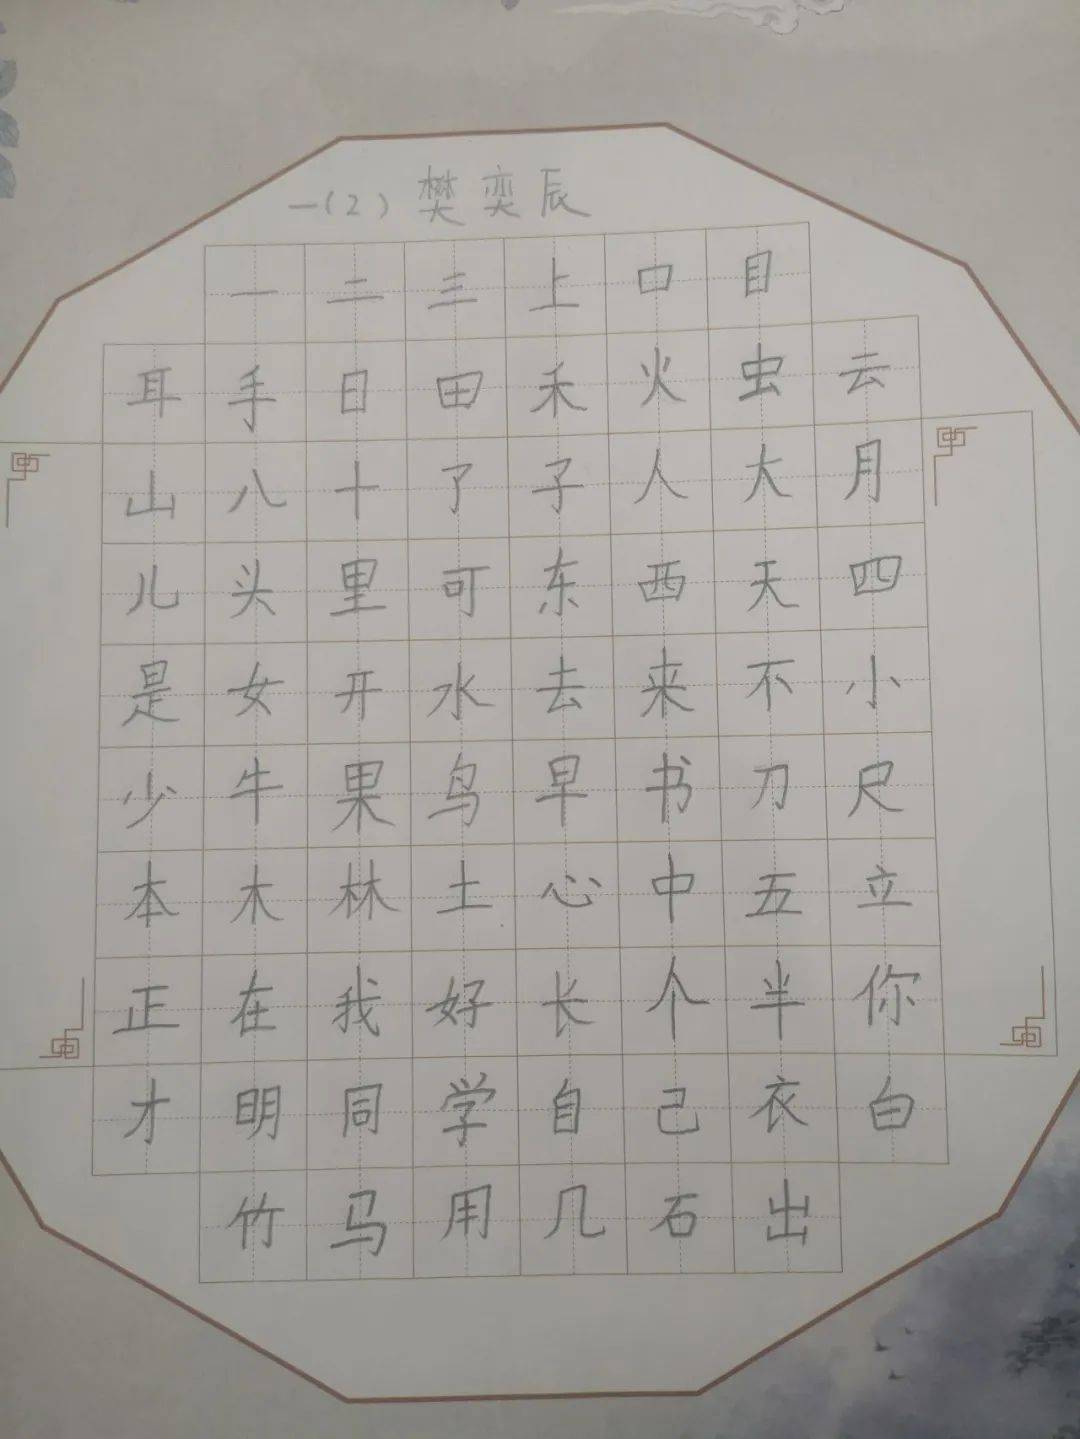 一(2) 樊奕辰
一二三上口目
耳手日田禾火虫云
山八十了子人大月
儿头里可东西天四
是女开水去来不小
少牛果鸟早书刀尺
本木林土心中五立
正在我好长个半你
才明同学自己衣白
竹马用几石出